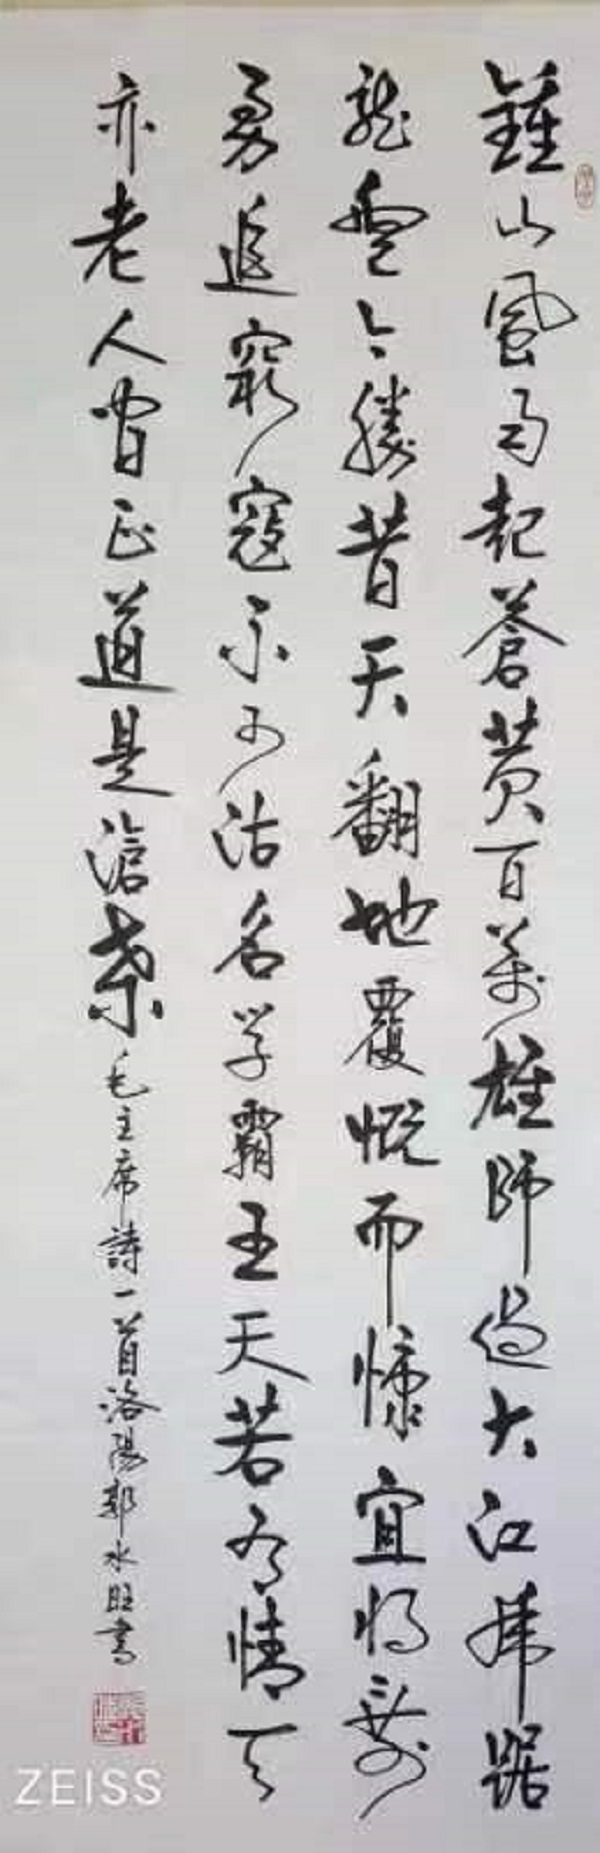 鍾山風雨起蒼黄百萬雄師過大江虎踞
龍盤今勝昔天翻地覆慨而慷宜將剩
勇追窮寇不可沽名学霸王天若有情天
亦老人間正道是滄桑
毛主席詩一首洛陽郭水旺書
ZEISS